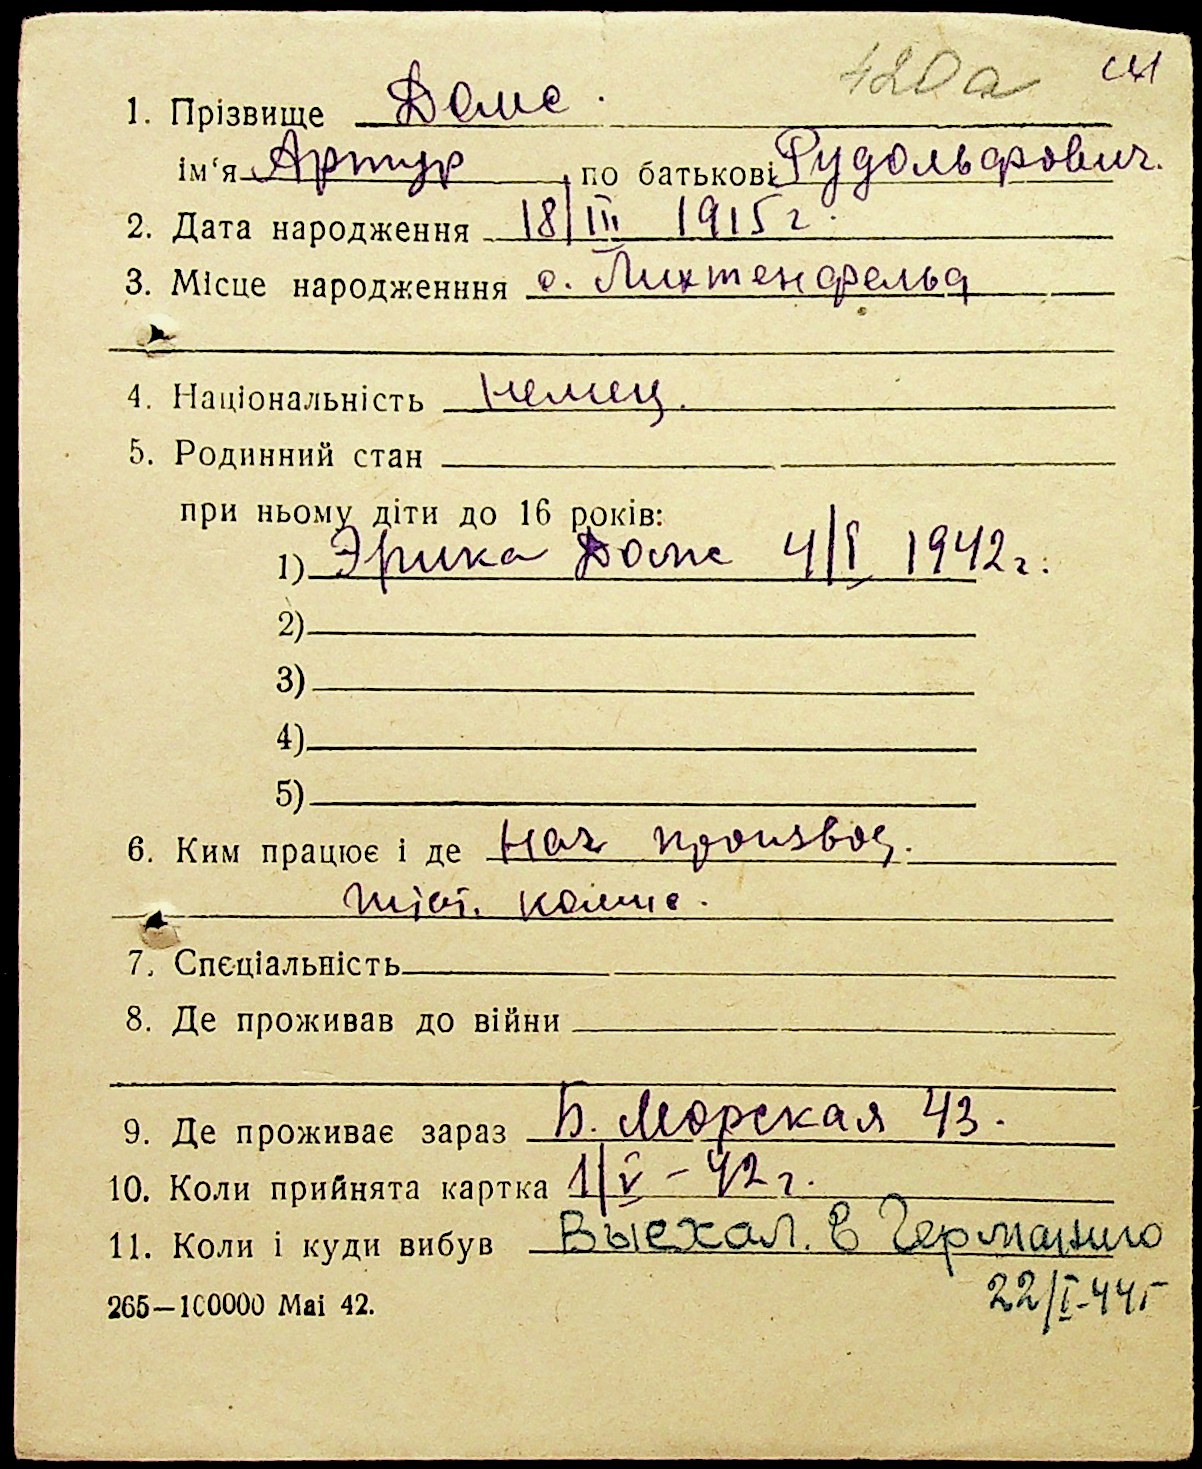 420а
1. Прізвище Домс.
ім‘я Артур, по батькові Рудольфович.
2. Дата народження 18/III 1915 г.
3. Місце народженння с. Лихтенфельд
4. Національність немец.
5. Родинний стан
при ньому діти до 16 років:
1) Эрика Домс 4/I 1942 г.
2)
3)
4)
5)
6. Ким працює і де Нач производ.
7. Спєціальність
8. Де проживав до війни
9. Де проживає зараз Б. Морская 43.
10. Коли прийнята картка 1/V - 42 г.
11. Коли і куди вибув Выехал. в Германию
22/I-44г
265—100000 Mai 42.